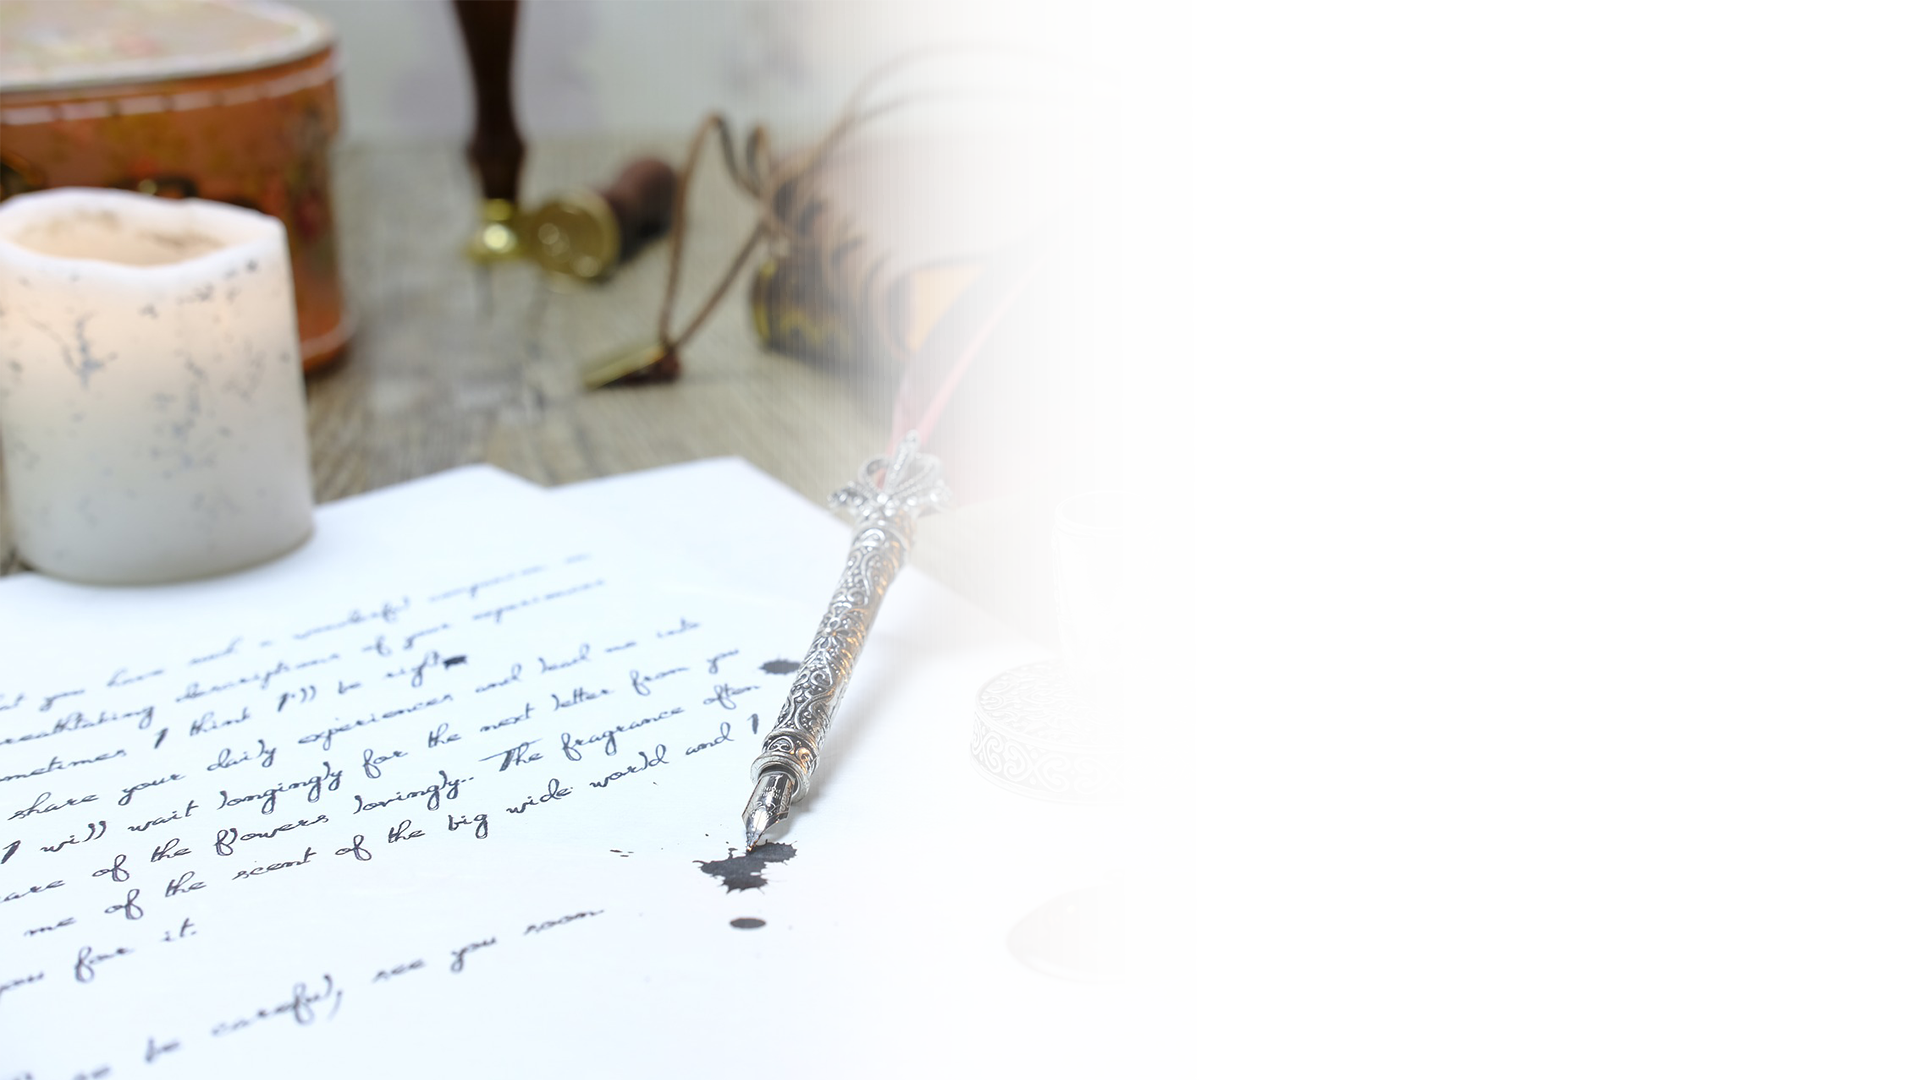 at you have such a wonderful companion in
reathtaking descriptions of your experiences
ometimes I think I'll be right
share your daily experiences and lead me into
I will wait longingly for the next letter from you
care of the flowers lovingly.. The fragrance often
me of the scent of the big wide world and I
you for it.
be careful, see you soon